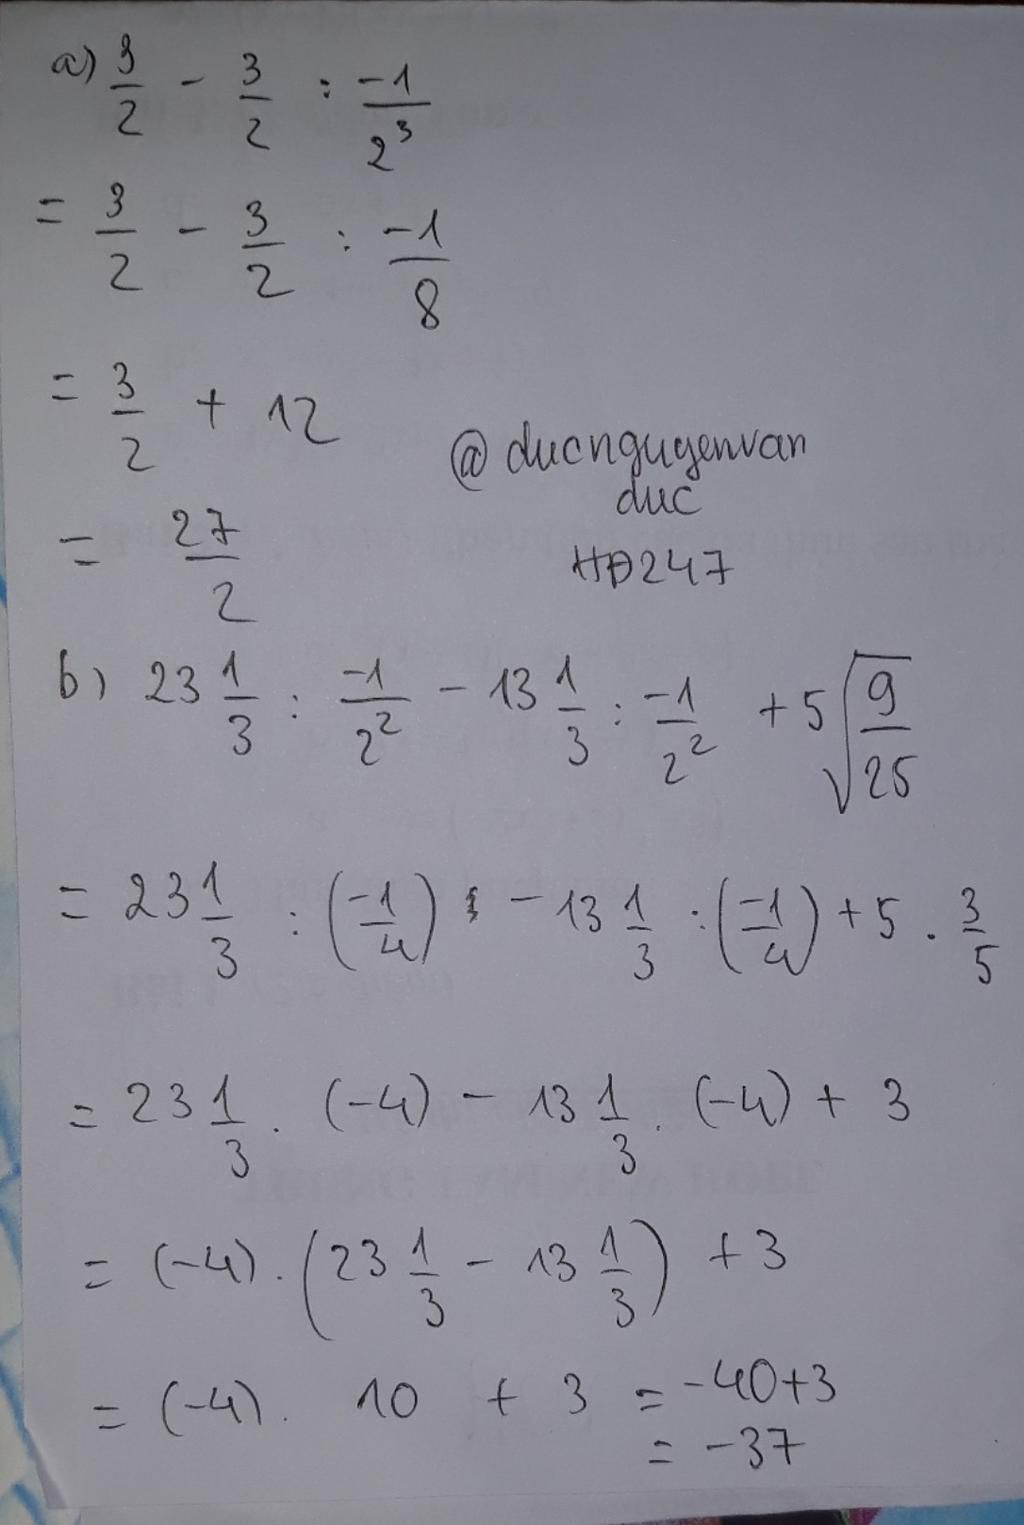 a) 3/2 - 3/2 : -1/2³
= 3/2 - 3/2 : -1/8
= 3/2 + 12
@ducnguyenvan
duc
= 27/2
HĐ247
b) 23 1/3 : -1/2² - 13 1/3 : -1/2² + 5√(9/25)
= 23 1/3 : (-1/4) - 13 1/3 : (-1/4) + 5 . 3/5
= 23 1/3 . (-4) - 13 1/3 . (-4) + 3
= (-4) . (23 1/3 - 13 1/3) + 3
= (-4) . 10 + 3 = -40+3
= -37